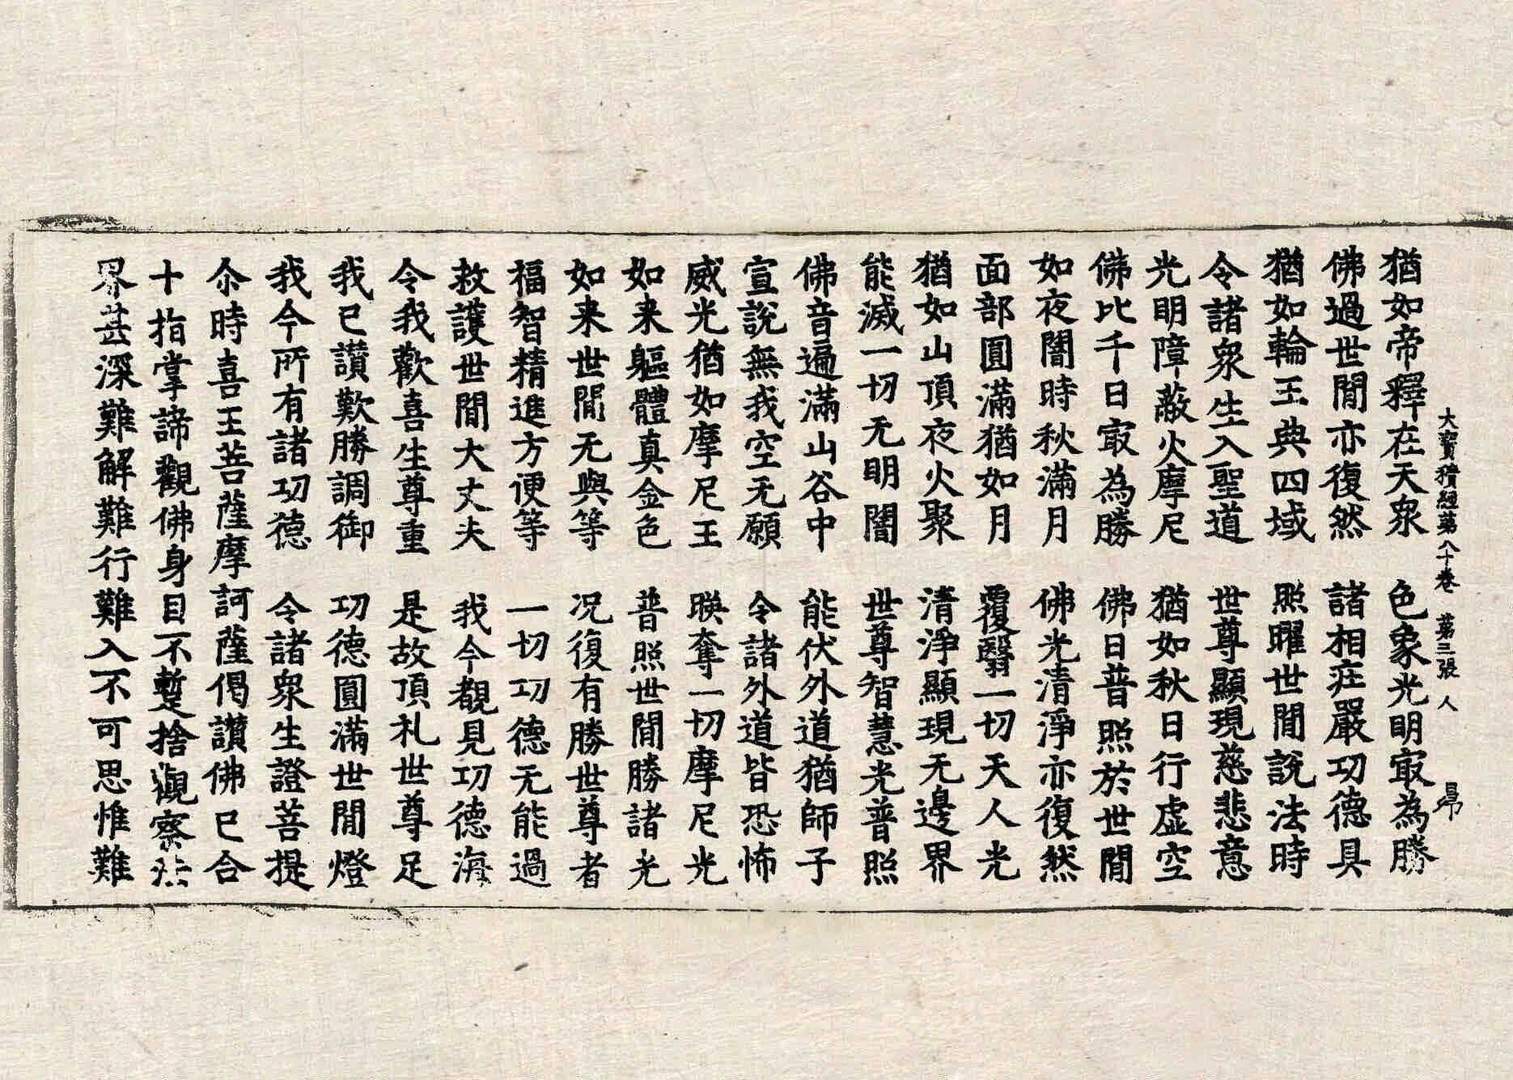 大寳積經苐八十卷　苐三張　人　昻
猶如帝釋在天衆　色象光明㝡為勝
佛過世閒亦復然　諸相莊嚴功德具
猶如輪王典四域　照曜世閒說法時
令諸衆生入聖道　世尊顯現慈悲意
光明障蔽火摩尼　猶如秋日行虛空
佛比千日㝡為勝　佛日普照於世閒
如夜闇時秋滿月　佛光清淨亦復然
面部圓滿猶如月　覆翳一切天人光
猶如山頂夜火聚　清淨顯現无邊界
能滅一切无明闇　世尊智慧光普照
佛音遍滿山谷中　能伏外道猶師子
宣說無我空无願　令諸外道皆恐怖
威光猶如摩尼王　暎奪一切摩尼光
如来軀體真金色　普照世閒勝諸光
如来世閒无與等　况復有勝世尊者
福智精進方便等　一切功德无能過
救護世閒大丈夫　我今觀見功德海
令我歡喜生尊重　是故頂礼世尊足
我已讃歎勝調御　功德圓滿世閒燈
我今所有諸功德　令諸衆生證菩提
尒時喜王菩薩摩訶薩偈讃佛已合
十指掌諦觀佛身目不蹔捨觀察法
界甚深難解難行難入不可思惟難